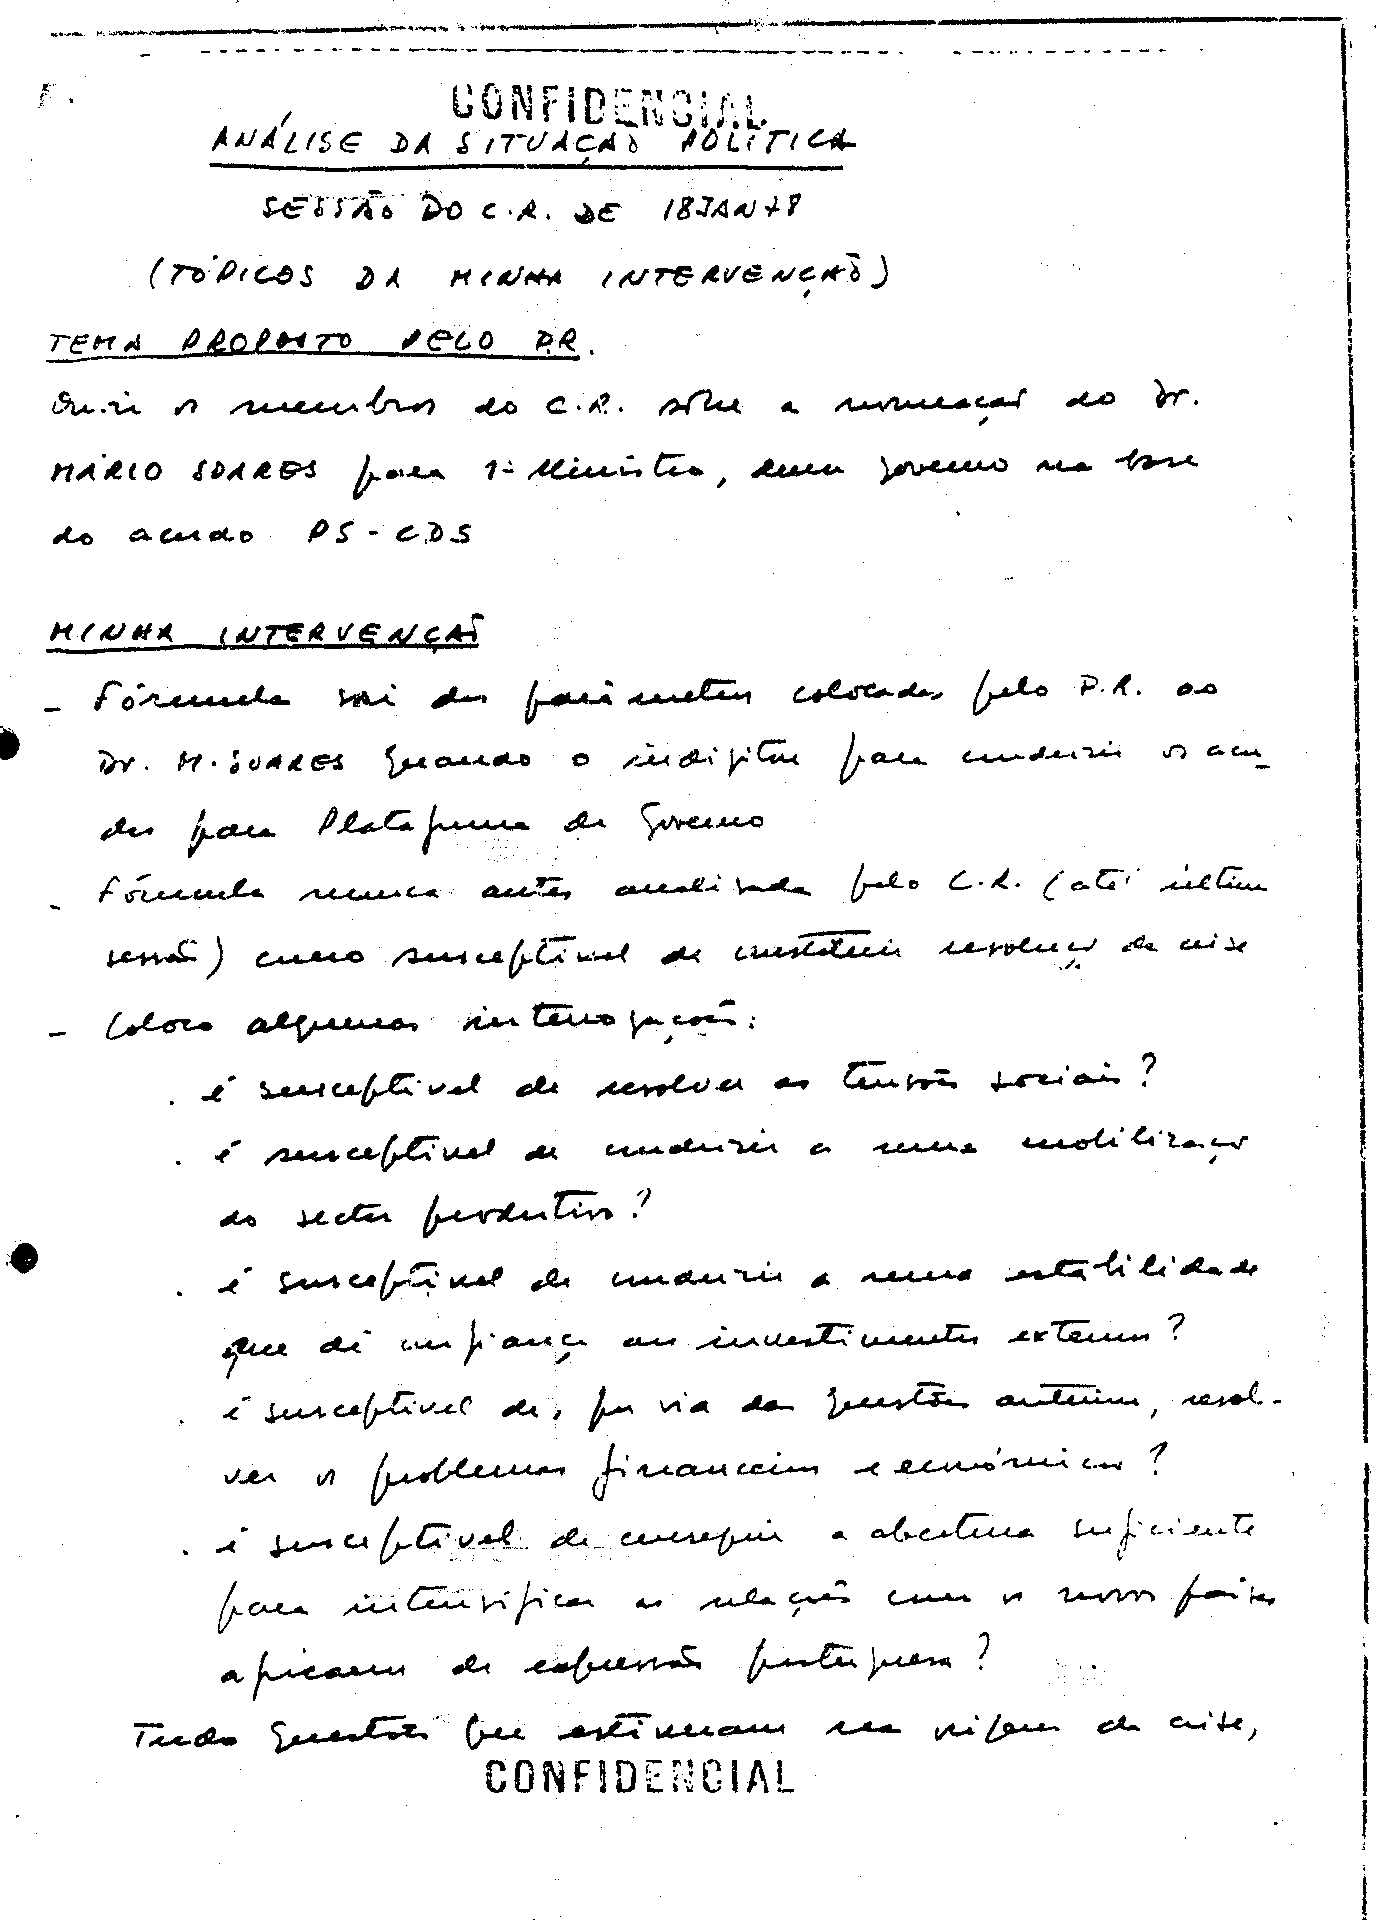 CONFIDENCIAL
ANÁLISE DA SITUAÇÃO POLÍTICA
SESSÃO DO C.R. DE 18JAN78
(TÓPICOS DA MINHA INTERVENÇÃO)
TEMA PROPOSTO PELO P.R.
Ouvir os membros do C.R. sôbre a nomeação do Dr.
MÁRIO SOARES para 1º Ministro, num governo na base
do acordo PS-CDS
MINHA INTERVENÇÃO
- Fórmula sai dos parâmetros colocados pelo P.R. ao
Dr. M. SOARES quando o indigitou para conduzir os acor_
dos para Plataforma de Governo
- Fórmula nunca antes analisada pelo C.R. (até última
sessão) como susceptível de constituir resolução da crise
- Coloco algumas interrogações:
. é susceptível de resolver as tensões sociais?
. é susceptível de conduzir a uma mobilização
do sector produtivo?
. é susceptível de conduzir a uma estabilidade
que dê confiança aos investimentos externos?
. é susceptível de, por via das questões anteriores, resol-
ver os problemas financeiros e económicos?
. é susceptível de conseguir a abertura suficiente
para intensificar as relações com os novos países
africanos de expressão portuguesa?
Tudo questões que estiveram na origem da crise,
CONFIDENCIAL